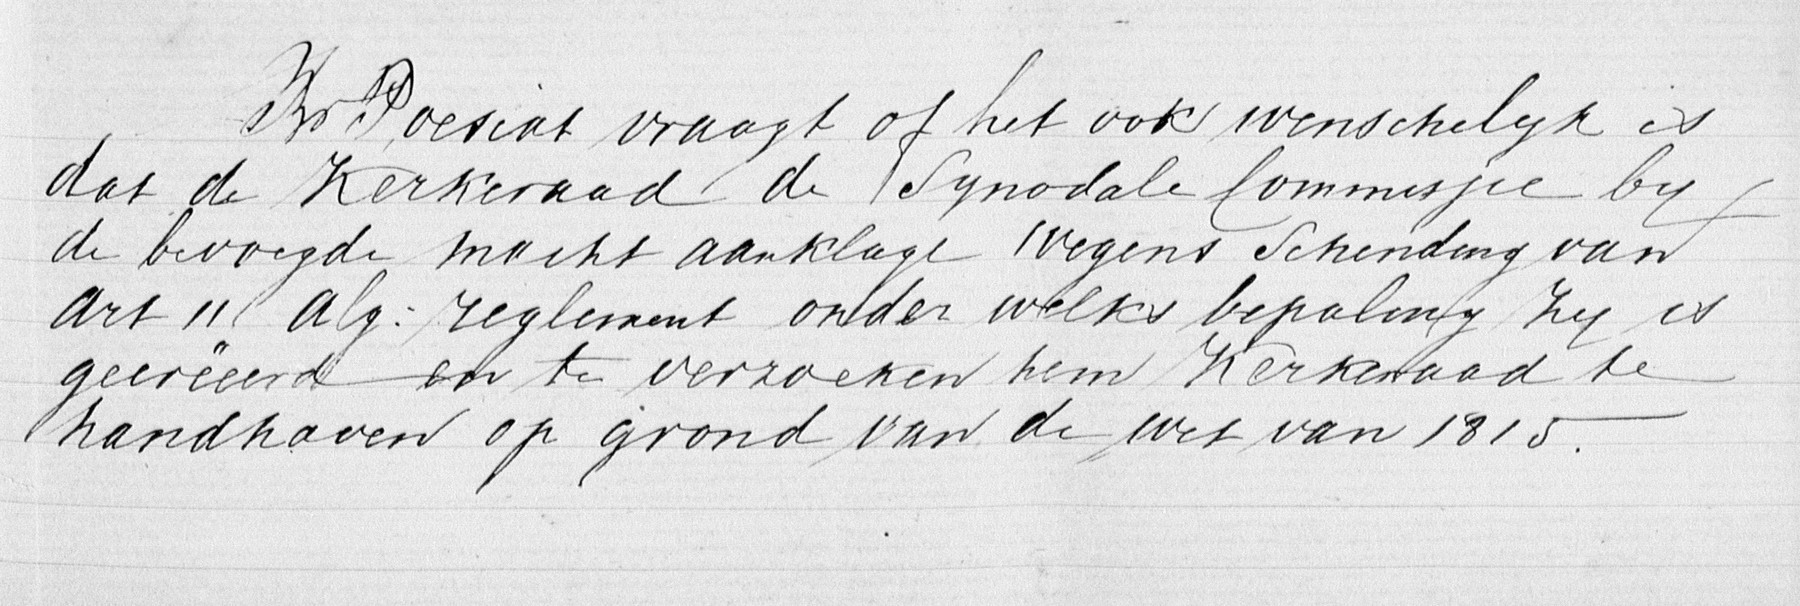 Br Poesiat vraagt of het ook wenschelyk is
dat de Kerkeraad de Synodale Commissie by
de bevoegde macht aanklage wegens Schending van
art 11 Alg: reglement onder welks bepaling zy is
gecreëerd en te verzoeken hem Kerkeraad te
handhaven op grond van de wet van 1815.